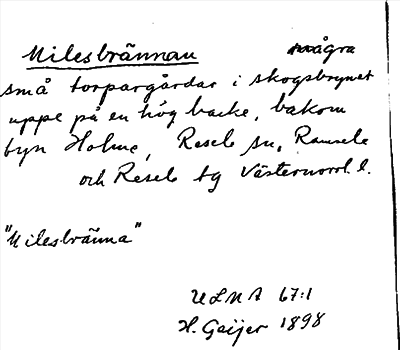 Milesbrännan några
små torpargårdar i skogsbrynet
uppe på en hög backe, bakom
byn Holme, Resele sn, Ramsele
och Resele tg Västernorrl. l.
"Milesbränna"
ULMA 67:1
H. Geijer 1898